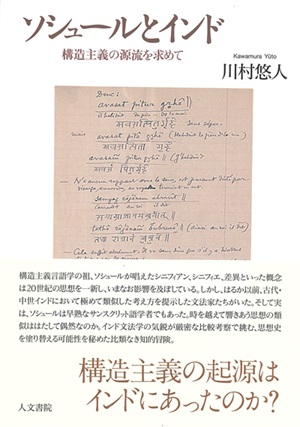 ソシュールとインド
構造主義の源流を求めて
Kawamura Yūto
川村悠人
Donc:
avasat pitur gṛhē
avasat pitā gṛhē
構造主義言語学の祖、ソシュールが唱えたシニフィアン、シニフィエ、差異といった概念
は20世紀の思想を一新し、いまなお影響を及ぼしている。しかし、はるか以前、古代・
中世インドにおいて極めて類似した考え方を提示した文法家たちがいた。そして実
は、ソシュールは早熟なサンスクリット語学者でもあった。時を越えて響きあう思想の類
似ははたして偶然なのか。インド文法学の気鋭が厳密な比較考察で挑む、思想史
を塗り替える可能性を秘めた比類なき知的冒険。
構造主義の起源は
インドにあったのか?
人文書院